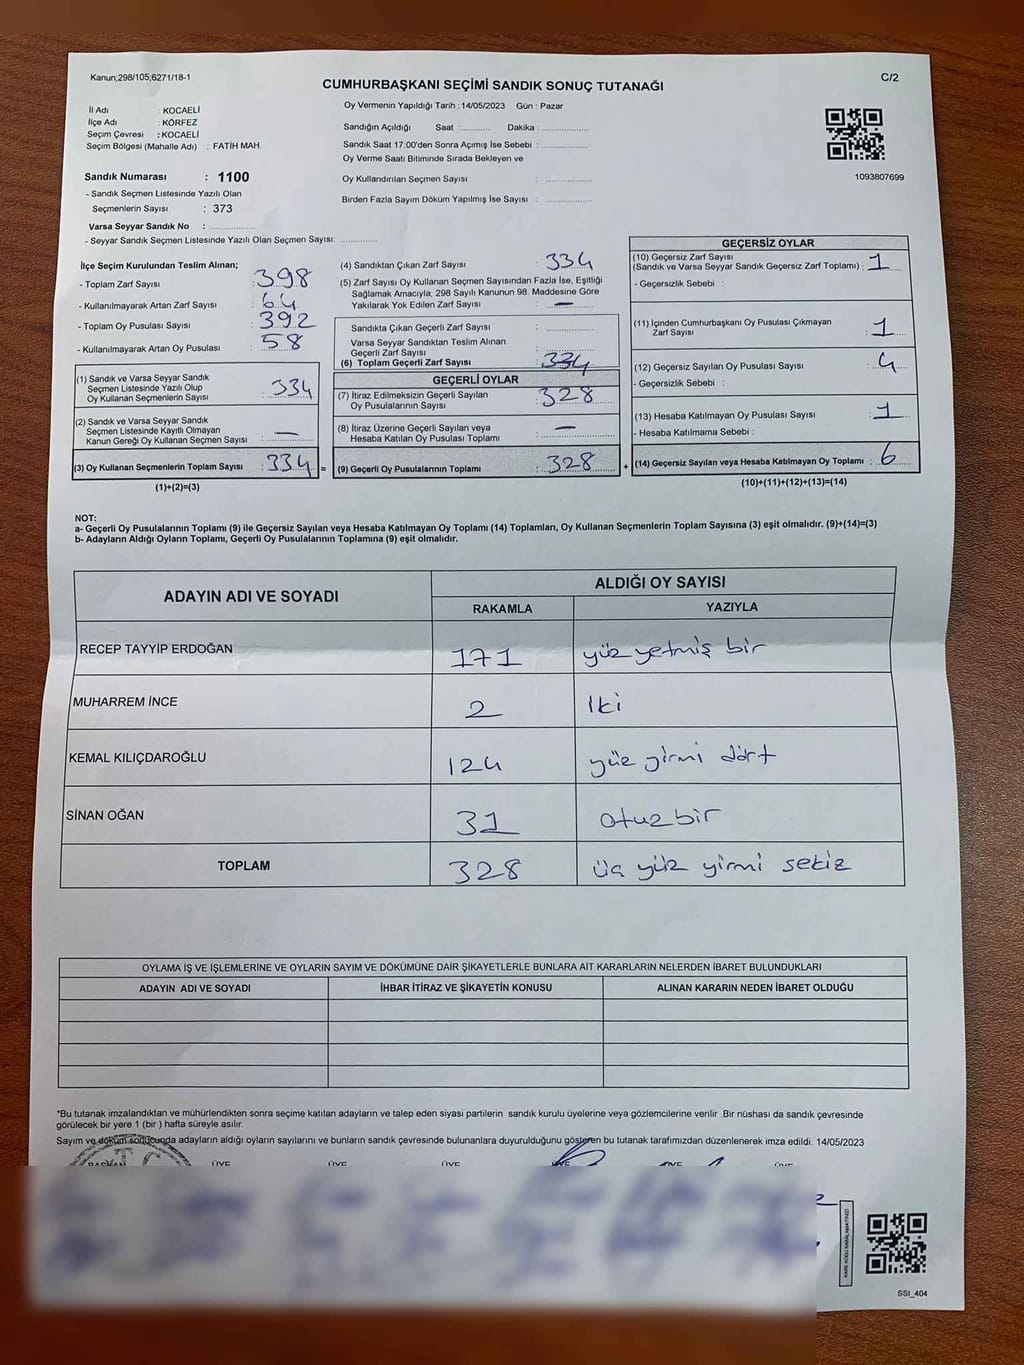 Kanun;298/105;6271/18-1
C/2
CUMHURBAŞKANI SEÇİMİ SANDIK SONUÇ TUTANAĞI
İl Adı : KOCAELİ
İlçe Adı : KÖRFEZ
Seçim Çevresi : KOCAELİ
Seçim Bölgesi (Mahalle Adı) : FATİH MAH.
Sandık Numarası : 1100
- Sandık Seçmen Listesinde Yazılı Olan
Seçmenlerin Sayısı : 373
Varsa Seyyar Sandık No : ..............
- Seyyar Sandık Seçmen Listesinde Yazılı Olan Seçmen Sayısı: ............
Oy Vermenin Yapıldığı Tarih : 14/05/2023 Gün : Pazar
Sandığın Açıldığı Saat :.......... Dakika : ..............
Sandık Saat 17:00'den Sonra Açımış İse Sebebi : ..............
Oy Verme Saati Bitiminde Sırada Bekleyen ve
Oy Kullandırılan Seçmen Sayısı : ..............
Birden Fazla Sayım Döküm Yapılmış İse Sayısı : ..............
1093807699
İlçe Seçim Kurulundan Teslim Alınan;
- Toplam Zarf Sayısı : 398
- Kullanılmayarak Artan Zarf Sayısı : 64
- Toplam Oy Pusulası Sayısı : 392
- Kullanılmayarak Artan Oy Pusulası : 58
(1) Sandık ve Varsa Seyyar Sandık
Seçmen Listesinde Yazılı Olup
Oy Kullanan Seçmenlerin Sayısı : 334
(2) Sandık ve Varsa Seyyar Sandık
Seçmen Listesinde Kayıtlı Olmayan
Kanun Gereği Oy Kullanan Seçmen Sayısı : —
(3) Oy Kullanan Seçmenlerin Toplam Sayısı : 334 =
(1)+(2)=(3)
(4) Sandıktan Çıkan Zarf Sayısı : 334
(5) Zarf Sayısı Oy Kullanan Seçmen Sayısından Fazla İse, Eşitliği
Sağlamak Amacıyla, 298 Sayılı Kanunun 98. Maddesine Göre
Yakılarak Yok Edilen Zarf Sayısı : —
Sandıkta Çıkan Geçerli Zarf Sayısı : ..............
Varsa Seyyar Sandıktan Teslim Alınan
Geçerli Zarf Sayısı : ..............
(6) Toplam Geçerli Zarf Sayısı : 334
GEÇERLİ OYLAR
(7) İtiraz Edilmeksizin Geçerli Sayılan
Oy Pusulalarının Sayısı : 328
(8) İtiraz Üzerine Geçerli Sayılan veya
Hesaba Katılan Oy Pusulası Toplamı : —
(9) Geçerli Oy Pusulalarının Toplamı : 328 +
GEÇERSİZ OYLAR
(10) Geçersiz Zarf Sayısı
(Sandık ve Varsa Seyyar Sandık Geçersiz Zarf Toplamı) : 1
- Geçersizlik Sebebi :
(11) İçinden Cumhurbaşkanı Oy Pusulası Çıkmayan
Zarf Sayısı : 1
(12) Geçersiz Sayılan Oy Pusulası Sayısı : 4
- Geçersizlik Sebebi :
(13) Hesaba Katılmayan Oy Pusulası Sayısı : 1
- Hesaba Katılmama Sebebi :
(14) Geçersiz Sayılan veya Hesaba Katılmayan Oy Toplamı : 6
(10)+(11)+(12)+(13)=(14)
NOT:
a- Geçerli Oy Pusulalarının Toplamı (9) ile Geçersiz Sayılan veya Hesaba Katılmayan Oy Toplamı (14) Toplamları, Oy Kullanan Seçmenlerin Toplam Sayısına (3) eşit olmalıdır. (9)+(14)=(3)
b- Adayların Aldığı Oyların Toplamı, Geçerli Oy Pusulalarının Toplamına (9) eşit olmalıdır.
ADAYIN ADI VE SOYADI ALDIĞI OY SAYISI
RAKAMLA YAZIYLA
RECEP TAYYİP ERDOĞAN 171 yüz yetmiş bir
MUHARREM İNCE 2 İki
KEMAL KILIÇDAROĞLU 124 yüz yirmi dört
SİNAN OĞAN 31 otuz bir
TOPLAM 328 üç yüz yirmi sekiz
OYLAMA İŞ VE İŞLEMLERİNE VE OYLARIN SAYIM VE DÖKÜMÜNE DAİR ŞİKAYETLERLE BUNLARA AİT KARARLARIN NELERDEN İBARET BULUNDUKLARI
ADAYIN ADI VE SOYADI İHBAR İTİRAZ VE ŞİKAYETİN KONUSU ALINAN KARARIN NEDEN İBARET OLDUĞU
*Bu tutanak imzalandıktan ve mühürlendikten sonra seçime katılan adayların ve talep eden siyasi partilerin sandık kurulu üyelerine veya gözlemcilerine verilir .Bir nüshası da sandık çevresinde
görülecek bir yere 1 (bir ) hafta süreyle asılır.
Sayım ve döküm sonucunda adayların aldığı oyların sayılarını ve bunların sandık çevresinde bulunanlara duyurulduğunu gösteren bu tutanak tarafımızdan düzenlenerek imza edildi. 14/05/2023
BAŞKAN ÜYE ÜYE ÜYE ÜYE ÜYE ÜYE
T.C.
SSI_404